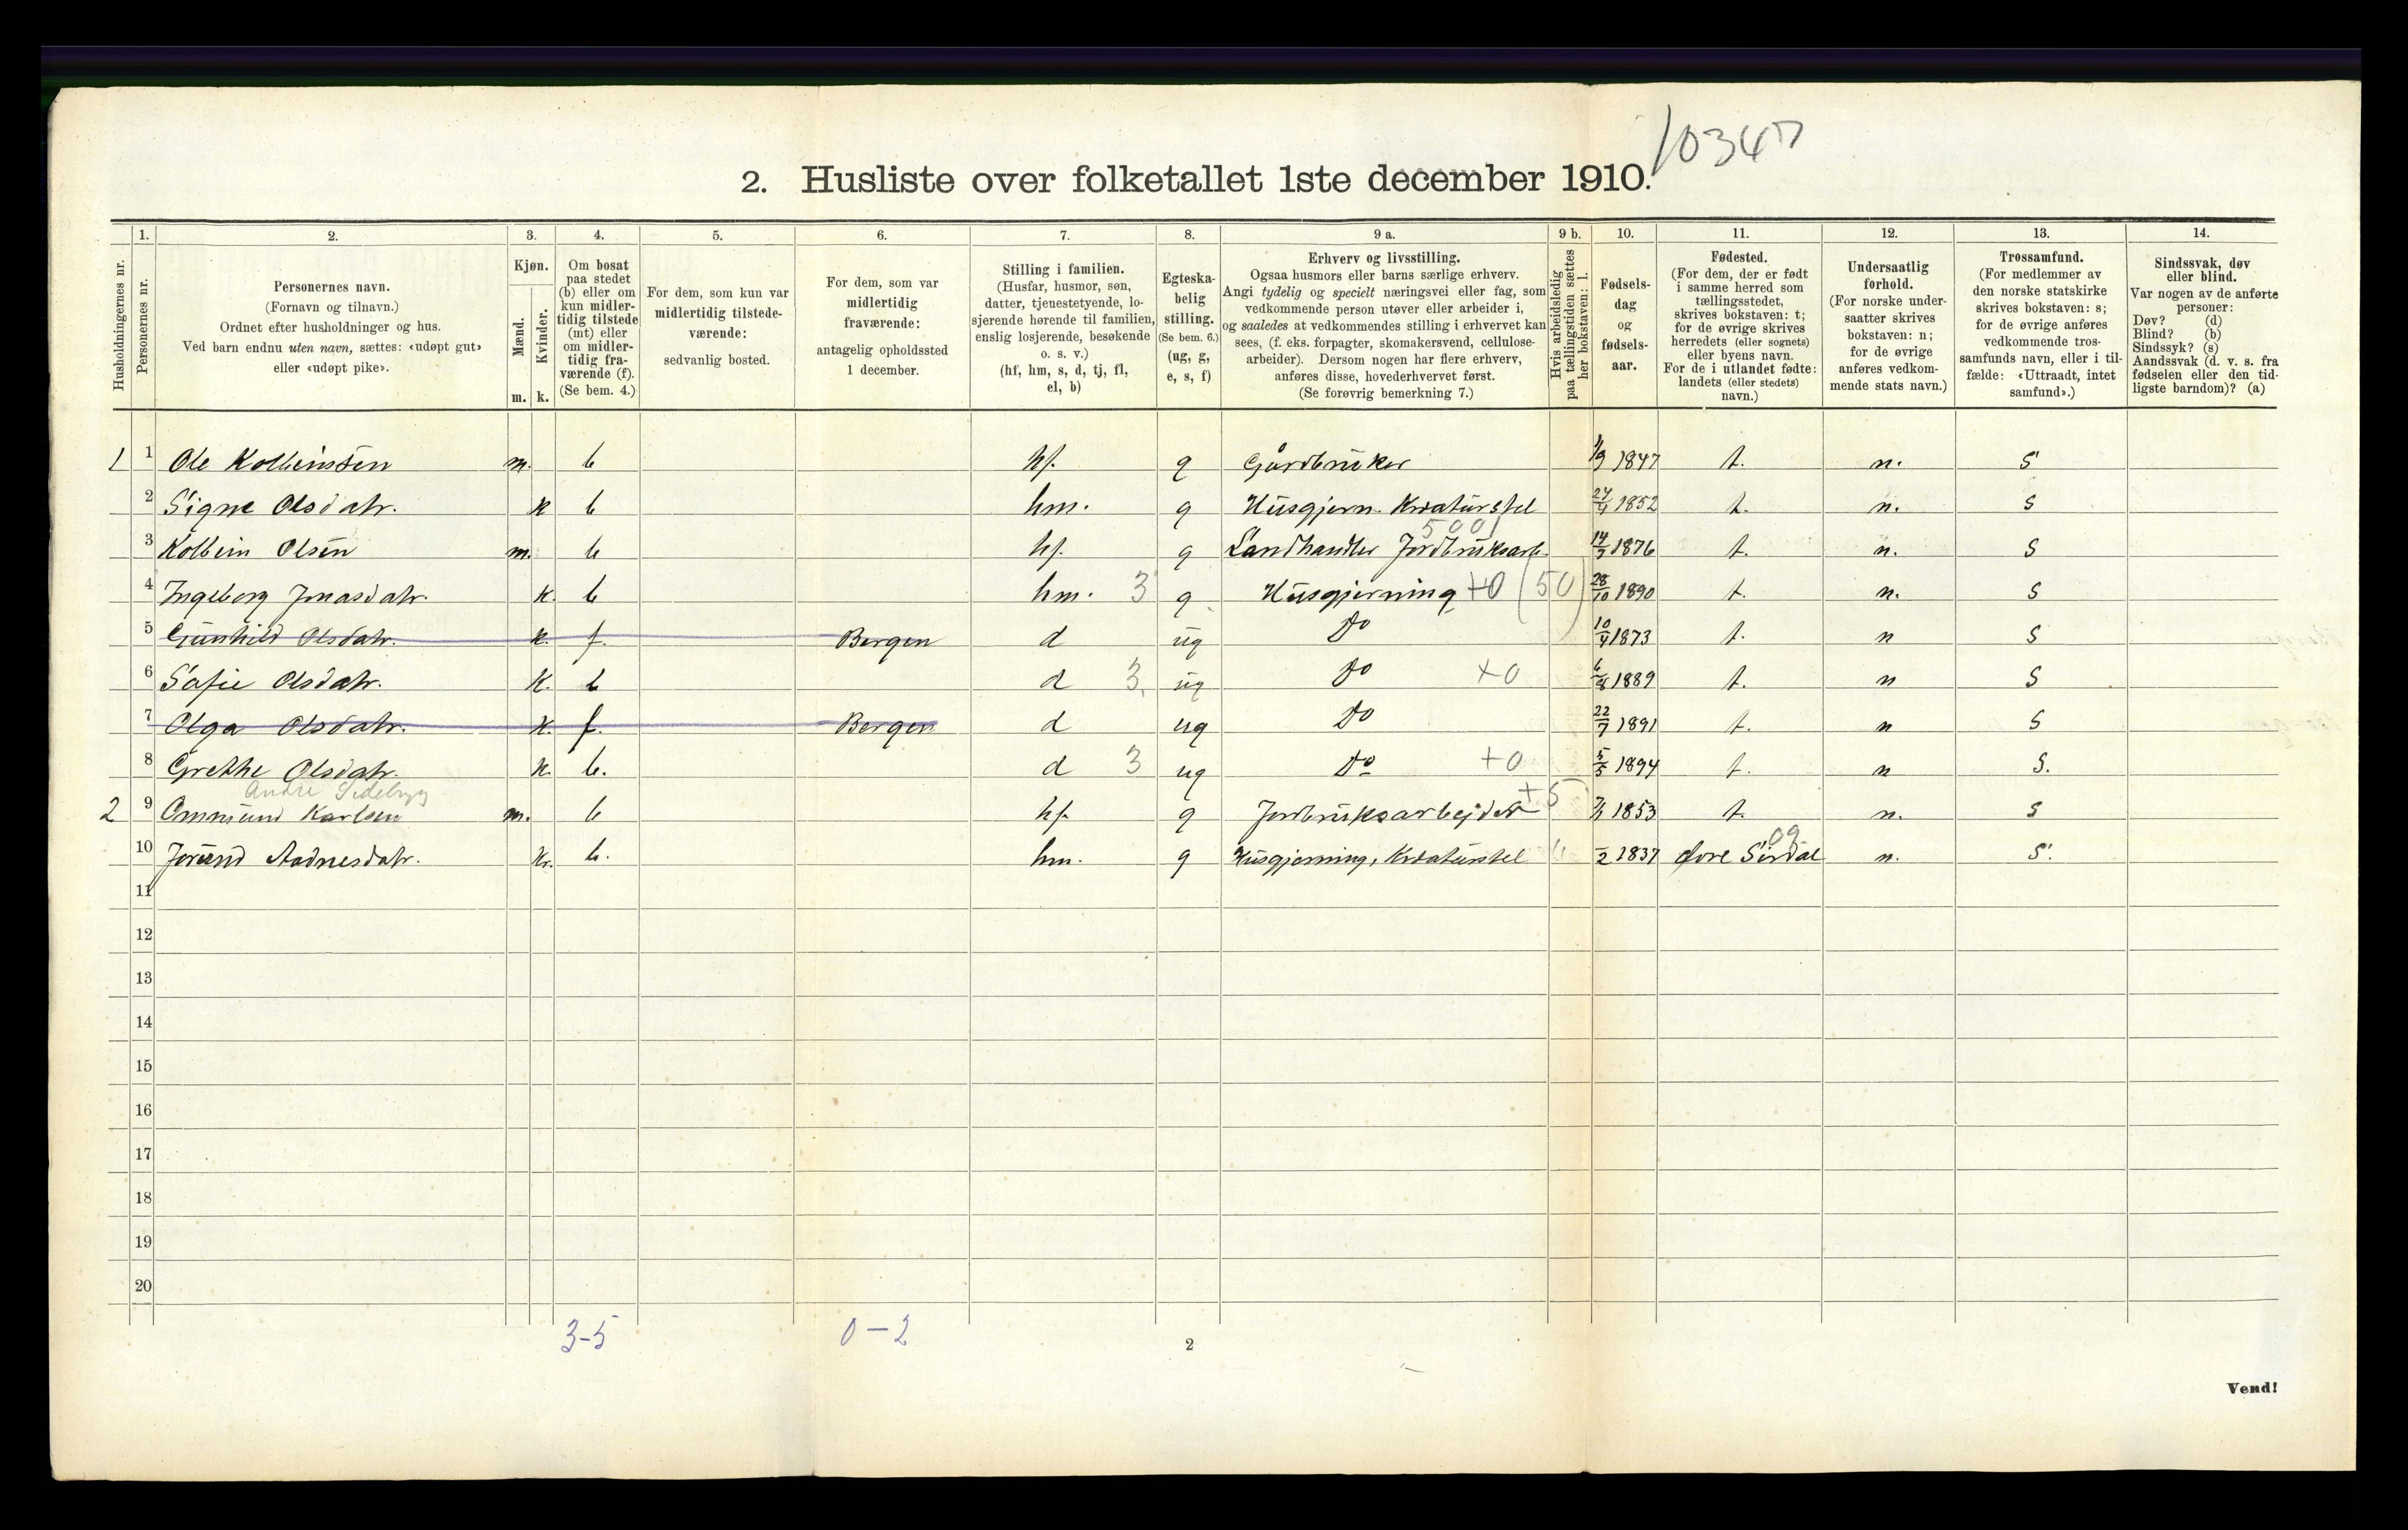 10347
2. Husliste over folketallet 1ste december 1910.
Husholdningernes nr. | 1. Personernes nr. | 2. Personernes navn. (Fornavn og tilnavn.) Ordnet efter husholdninger og hus. Ved barn endnu uten navn, sættes: «udøpt gut» eller «udøpt pike». | 3. Kjøn. Mænd. m. Kvinder. k. | 4. Om bosat paa stedet (b) eller om kun midler-tidig tilstede (mt) eller om midler-tidig fra-værende (f). (Se bem. 4.) | 5. For dem, som kun var midlertidig tilstede-værende: sedvanlig bosted. | 6. For dem, som var midlertidig fraværende: antagelig opholdssted 1 december. | 7. Stilling i familien. (Husfar, husmor, søn, datter, tjenestetyende, lo-sjerende hørende til familien, enslig losjerende, besøkende o. s. v.) (hf, hm, s, d, tj, fl, el, b) | 8. Egteska-belig stilling. (Se bem. 6.) (ug, g, e, s, f) | 9 a. Erhverv og livsstilling. Ogsaa husmors eller barns særlige erhverv. Angi tydelig og specielt næringsvei eller fag, som vedkommende person utøver eller arbeider i, og saaledes at vedkommendes stilling i erhvervet kan sees, (f. eks. forpagter, skomakersvend, cellulose-arbeider). Dersom nogen har flere erhverv, anføres disse, hovederhvervet først. (Se forøvrig bemerkning 7.) | 9 b. Hvis arbeidsledig paa tællingstiden sættes her bokstaven: l. | 10. Fødsels-dag og fødsels-aar. | 11. Fødested. (For dem, der er født i samme herred som tællingsstedet, skrives bokstaven: t; for de øvrige skrives herredets (eller sognets) eller byens navn. For de i utlandet fødte: landets (eller stedets) navn.) | 12. Undersaatlig forhold. (For norske under-saatter skrives bokstaven: n; for de øvrige anføres vedkom-mende stats navn.) | 13. Trossamfund. (For medlemmer av den norske statskirke skrives bokstaven: s; for de øvrige anføres vedkommende tros-samfunds navn, eller i til-fælde: «Uttraadt, intet samfund».) | 14. Sindssvak, døv eller blind. Var nogen av de anførte personer: Døv? (d) Blind? (b) Sindssyk? (s) Aandssvak (d. v. s. fra fødselen eller den tid-ligste barndom)? (a)
1 1 Ole Kolbeinsen m. b hf. g Gårdbruker 1/9 1847 t. n. S
2 Signe Olsdatr. k b hm. g Husgjern. Kreaturstel 24/4 1852 t. n. S
5001
3 Kolbein Olsen m. b hf. g Landhandler Jordbruksarb. 1876 t. n. S
4 Ingeborg Jonasdatr. k. b hm. 3 g Husgjerning +0 (50) 28/10 1890 t. n. S
5 Gunhild Olsdatr. k. f. Bergen d ug Do 10/4 1873 t. n S
6 Sofie Olsdatr. k. b d 3 ug Do +0 6/8 1889 t. n S
7 Olga Olsdatr. k. f. Bergen d ug Do 22/7 1891 t. n S
8 Grethe Olsdatr. k. b. d 3 ug Do +0 5/5 1894 t. n S.
Andre Sidebyg
2 9 Ommund Karlsen m. b hf. g Jordbruksarbejder +5 1853 t. n. S
09
10 Jorund Aadnesdatr. k. b. hm. g Husgjerning, Kreaturstel 1837 Øvre Sirdal n. S.
11
12
13
14
15
16
17
18
19
20
3-5 0-2
2
Vend!